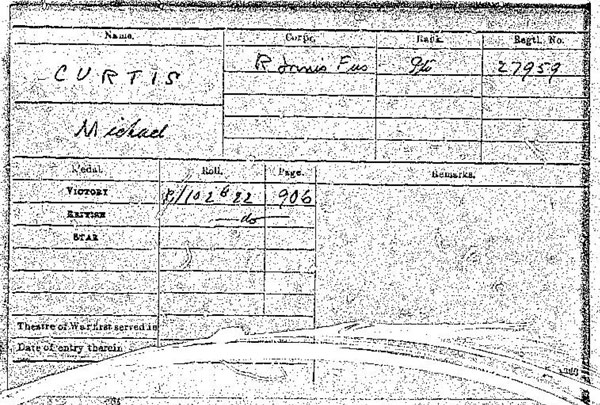 Name. Corps. Rank. Regtl. No.
CURTIS R Innis Fus Pte 27959
Michael
Medal. Roll. Page. Remarks.
VICTORY 102 B 22 906
BRITISH do
STAR
Theatre of War first served in
Date of entry therein